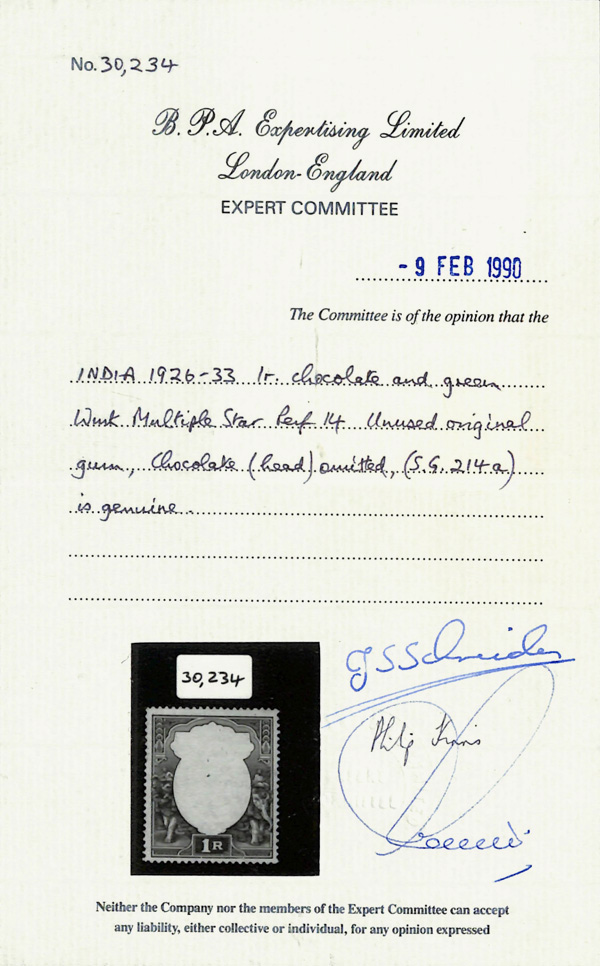 No. 30,234
B. P.A. Expertising Limited
London-England
EXPERT COMMITTEE
- 9 FEB 1990
The Committee is of the opinion that the
INDIA 1926-33 1r. chocolate and green
Wmk Multiple Star Perf 14 Unused original
gum, Chocolate (head) omitted, (S.G. 214a)
is genuine.
30,234
1R
Neither the Company nor the members of the Expert Committee can accept
any liability, either collective or individual, for any opinion expressed